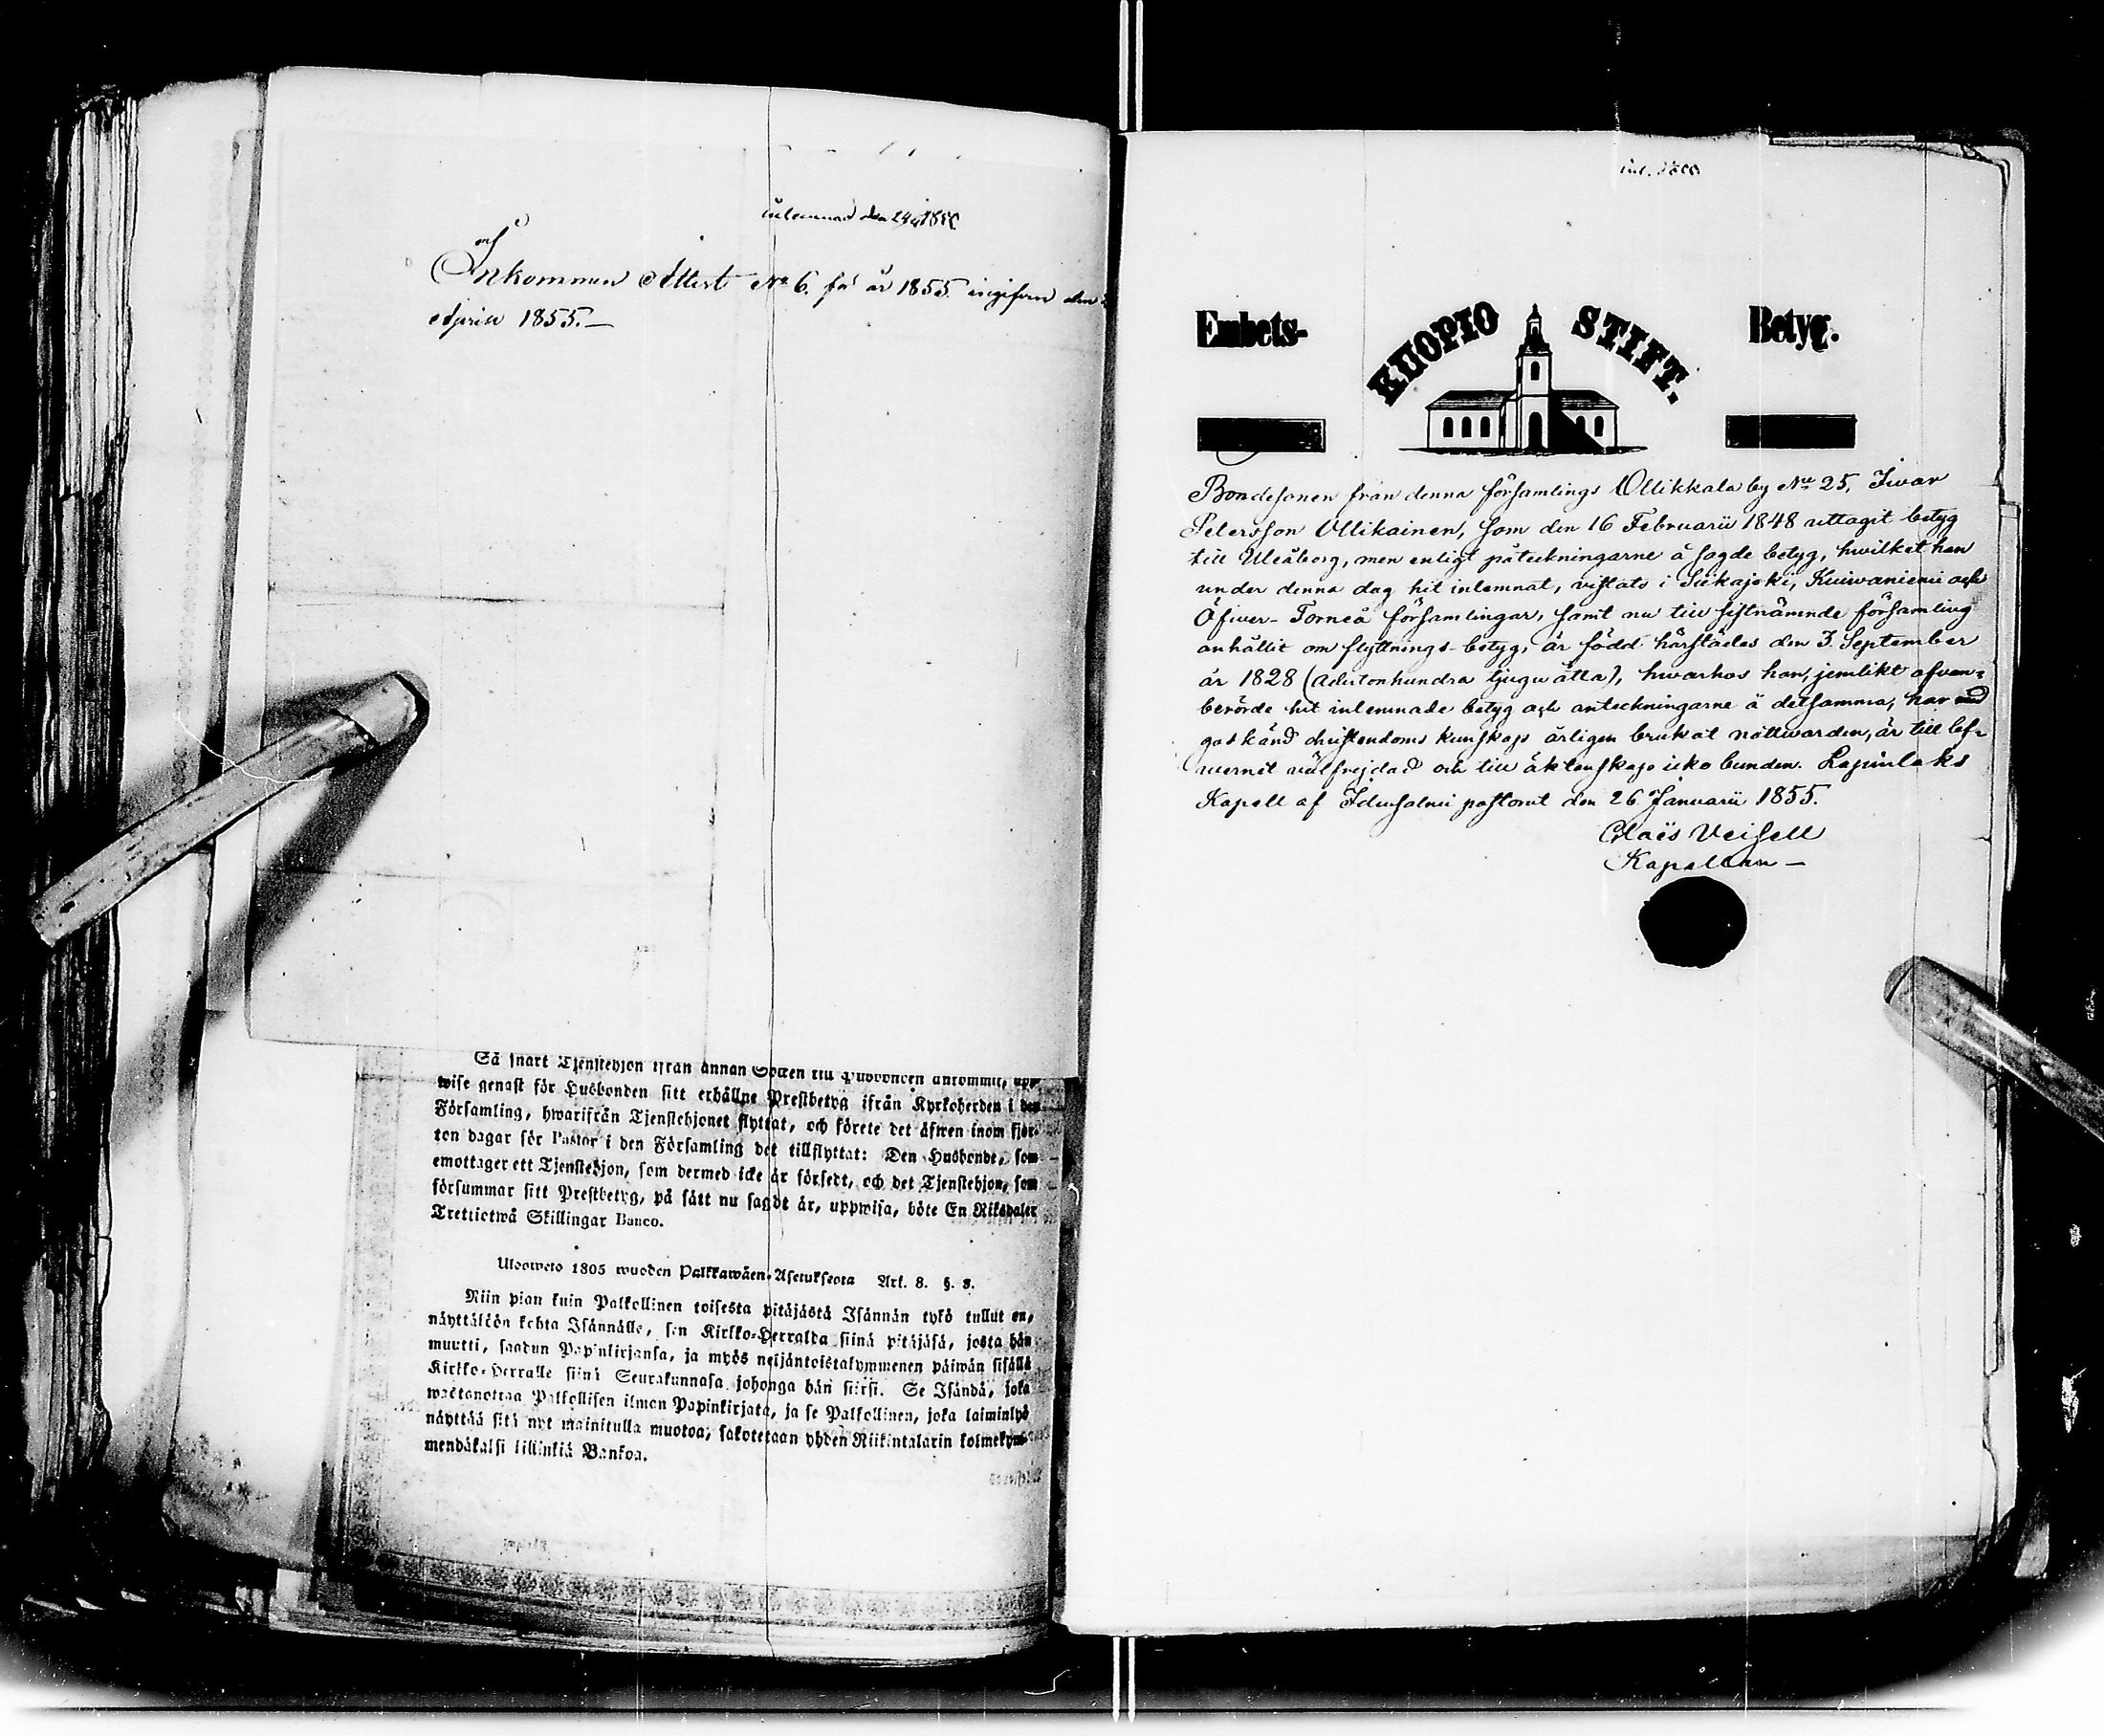 inlemnad den
Inkommen Attest No 6. för år 1855 ingifven den
April 1855.—
Så snart Tjenstehjon ifrån annan Socken till Husbonden ankommit, upp-
wise genast för Husbonden sitt erhållne Prestbetyg ifrån Kyrkoherden i den
Församling, hwarifrån Tjenstehjonet flyttat, och förete det äfwen inom fjor-
ton dagar för Pastor i den Församling det tillflyttat: Den Husbonde, som
emottager ett Tjenstehjon, som dermed icke är försedt, och det Tjenstehjon, som
försummar sitt Prestbetyg, på sätt nu sagdt är, uppwisa, böte En Riksdaler
Trettiotwå Skillingar Banco.
Ulosweto 1805 wuoden Palkkawäen-Asetuksesta Art. 8. §. 8.
Niin pian kuin Palkollinen toisesta pitäjästä Isännän tykö tullut on,
näyttäköön kohta Isännälle, sen Kirkko-Herralda siinä pitäjäsä, josta hän
muutti, saadun Papinkirjansa, ja myös neljäntoistakymmenen päiwän sisällä
Kirkko-Herralle siinä Seurakunnasa johonga hän siirsi. Se Isändä, joka
wastanottaa Palkollisen ilman Papinkirjata, ja se Palkollinen, joka laiminlyö
näyttää sitä nyt mainitulla muotoa, sakotetaan yhden Riikintalarin kolmekym-
mendäkaksi killinkiä Bankoa.
Embets- KUOPIO STIFT. Betyg.
Bondesonen från denna församlings Ollikkala by No 25, Ivar
Petersson Ollikainen, som den 16 Februarii 1848 uttagit betyg
till Uleåborg, men enligt påteckningarne å sagde betyg, hwilket han
under denna dag hit inlemnat, vistats i Siikajoki, Kuiwaniemi och
Öfwer-Torneå församlingar, samt nu till sistnämnde församling
anhållit om flyttnings-betyg, är född härstädes den 3 September
år 1828 (adertonhundra tjugu åtta), hwarhos han, jemlikt ofvan-
berörde hit inlemnade betyg och anteckningarne å detsamma, har med
godkänd christendoms kunskap årligen brukat nattwarden, är till lef-
wernet välfrejdad och till äktenskap icke bunden. Lapinlaks
Kapell af Idensalmi pastorat den 26 Januarii 1855.
Claës Veisell
Kapellan —